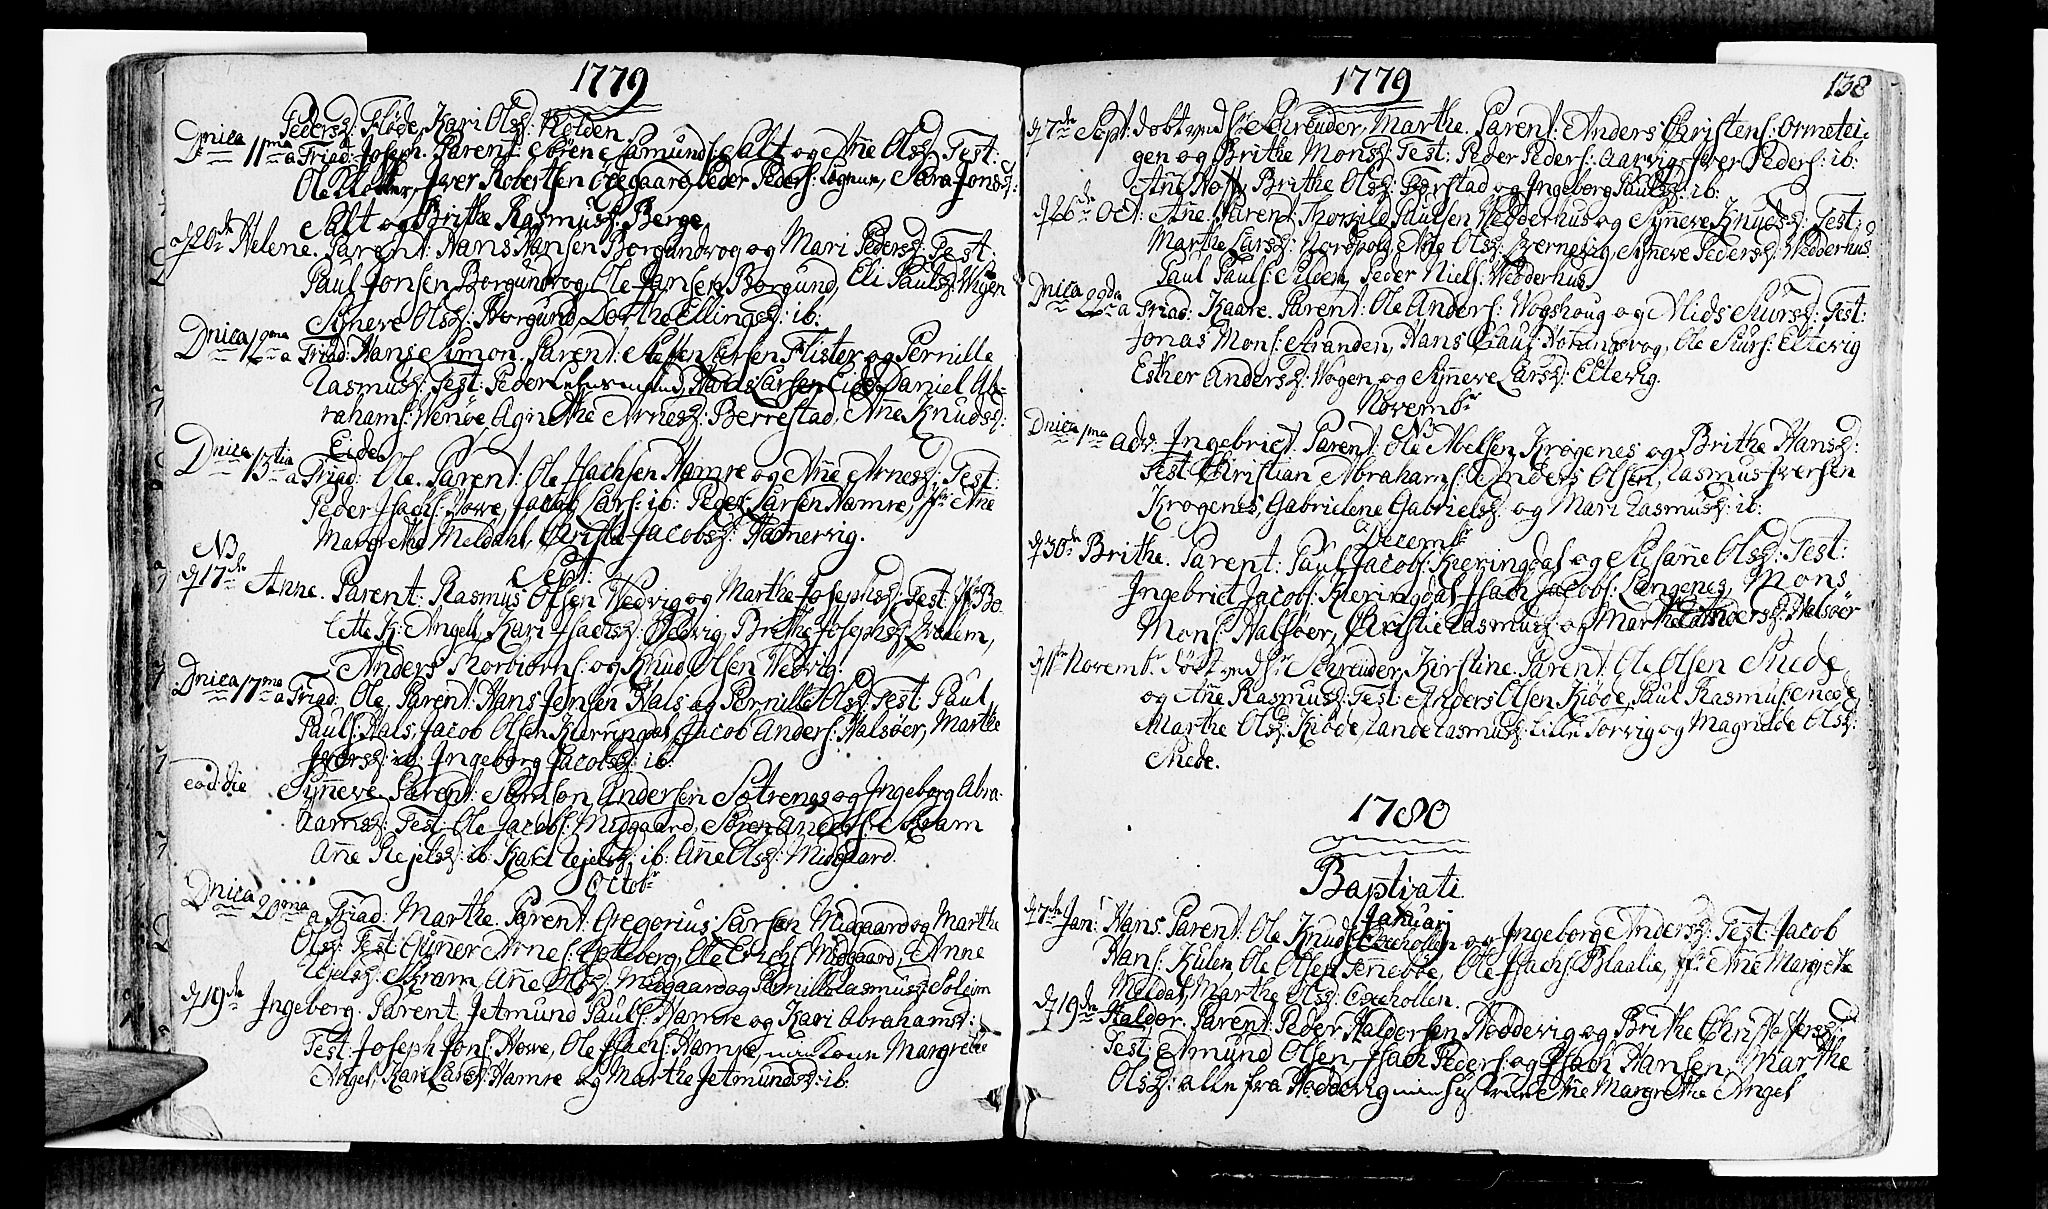 1779
Pedersd: Fløde, Kari Olsd: Holden
Dnica 11ma a Triad: Joseph. Parent: Søren Samunds: Salt og Añe Olsd: Test:
Ole Klokker, Iver Robertsen Ødegaard, Peder Peders: Løgnue, Sara Jonsd:
Salt og Brithe Rasmusd: Berge
d 20de Helene. Parent: Hans Hansen Borgundvog og Mari Pedersd: Test:
Paul Jonsen Borgundvog, Ole Jansen Borgund, Eli Paulsd: Wigen
Syneve Olsd: Borgund, Dorthe Ellingsd: ib:
Dnica 12ma a Triad: Hans Simon. Parent: Steffen Larsen Flister og Pernille
Rasmusd: Test: Peder Larsen Eide, Daniel Ab-
rahams: Wenøe, Agnethe Arnesd: Berrestad, Añe Knudsd:
Eide
Dnica 13tia a Triad: Ole. Parent: Ole Isachsen Hamre og Añe Arnesd: Test:
Peder Isachs: Howe, Jacob Lars: ib: Peder Larsen Hamre, Jfr: Añe
Margretha Meldahl, Christie Jacobsd: Hamervig.
NB
Sept:
d 17de Anne. Parent: Rasmus Olsen Wedvig og Marthe Josephsd: Test: Jfr: Bo-
lette K: Angell, Kari Isachsd: Wedvig, Brithe Josephsd: Qvalem,
Anders Thorbiørns: og Knud Olsen Wedvig.
Dnica 17ma a Triad: Ole, Parent: Hans Jensen Hals og Pernille Olsd: Test: Paul
Pauls: Hals, Jacob Olsen Kieringdal, Jacob Anders: Halsøer, Marthe
Iversd: ib: Ingeborg Jacobsd: ib:
eod: die Syneve. Parent: Samson Andersen Sætrenes og Ingeborg Abra-
hamsd: Test: Ole Jacobs: Midgaard, Søren Anders: Skram
Añe Rejelsd: ib: Kari Rejelsd: ib: Añe Olsd: Midgaard.
Octobr
Dnica 20ma a Triad: Marthe. Parent: Gregorius Larsen Midgaard og Marthe
Olsd: Test: Gunner Arnes: Gotteberg, Ole Erichs: Midgaard, Anne
Rejelsd: Skram, Añe Olsd: Midgaard og Pernille Rasmusd: Soleim
d 19de Ingeborg. Parent: Jetmund Pauls: Hamre og Kari Abrahamsd:
Test: Joseph Jons: Howe, Ole Isachs: Hamre, min Kone Margrethe
Angel, Kari Larsd: Hamre og Marthe Jetmundsd: ib:
1779
138
d 7de Sept: døbt ved Hr Schreuder, Marthe. Parent: Anders Christens: Ormetei-
gen og Brithe Monsd: Test: Peder Peders: Aarvig, Iver Peders: ib:
Añe Hoff, Brithe Olsd: Farstad og Ingeborg Paulsd: ib:
d 26de Oct: Añe. Parent: Thorkild Paulsen Wedderhus og Syneve Knudsd: Test:
Marthe Larsd: Nordpold, Añe Olsd: Bernevig, Syneve Pedersd: Wedderhus
Paul Pauls: Silden, Peder Niels: Wedderhus.
Dnica 22da a Triad: Kaare. Parent: Ole Anders: Wogshoug og Alids Siursd: Test:
Jonas Mons: Stranden, Hans Claus: Hornungvog, Ole Siurs: Eltevig
Esther Andersd: Wogen og Syneve Larsd: Eltevig.
Novembr
NB
Dnica 1ma adv: Ingebrict. Parent: Ole Abelsen Krogenes og Brithe Hansd:
Test: Christian Abrahams: Anders Olsen, Rasmus Iversen
Krogenes, Gabrielene Gabrielsd: og Mari Rasmusd: ib:
Decembr
d 30de Brithe. Parent: Paul Jacobs: Kieringdal og Susañe Olsd: Test:
Ingebrict Jacobs: Kieringdal, Isach Jacobs: Langenes, Mons
Mons: Halsøer, Christie Rasmusd: og Marthe Andersd: Halsøer
d 11te Novembr: døbt ved Hr Schreuder, Kirstine. Parent: Ole Olsen Snede
og Añe Rasmusd: Test: Anders Olsen Kiøde, Paul Rasmus: Snede
Marthe Olsd: Kiøde, Rande Rasmusd: Lille Torvig og Magrethe Olsd:
Snede.
1780
Baptizati
Januarj
d 7de Jan: Hans. Parent: Ole Knuds: Oxehollen og Ingeborg Andersd: Test: Jacob
Hans: Kulen, Ole Olsen Señebøe, Ole Isachs: Blaalie, Jfr: Añe Margrethe
Meldal, Marthe Olsd: Oxehollen.
d 19de Haldor. Parent: Peder Haldorsen Hoddevig og Brithe Christophersd:
Test: Amund Olsen, Isach Peders: og Isach Hansen, Marthe
Olsd: alle fra Hoddevig min Hustrue Añe Margrethe Angel